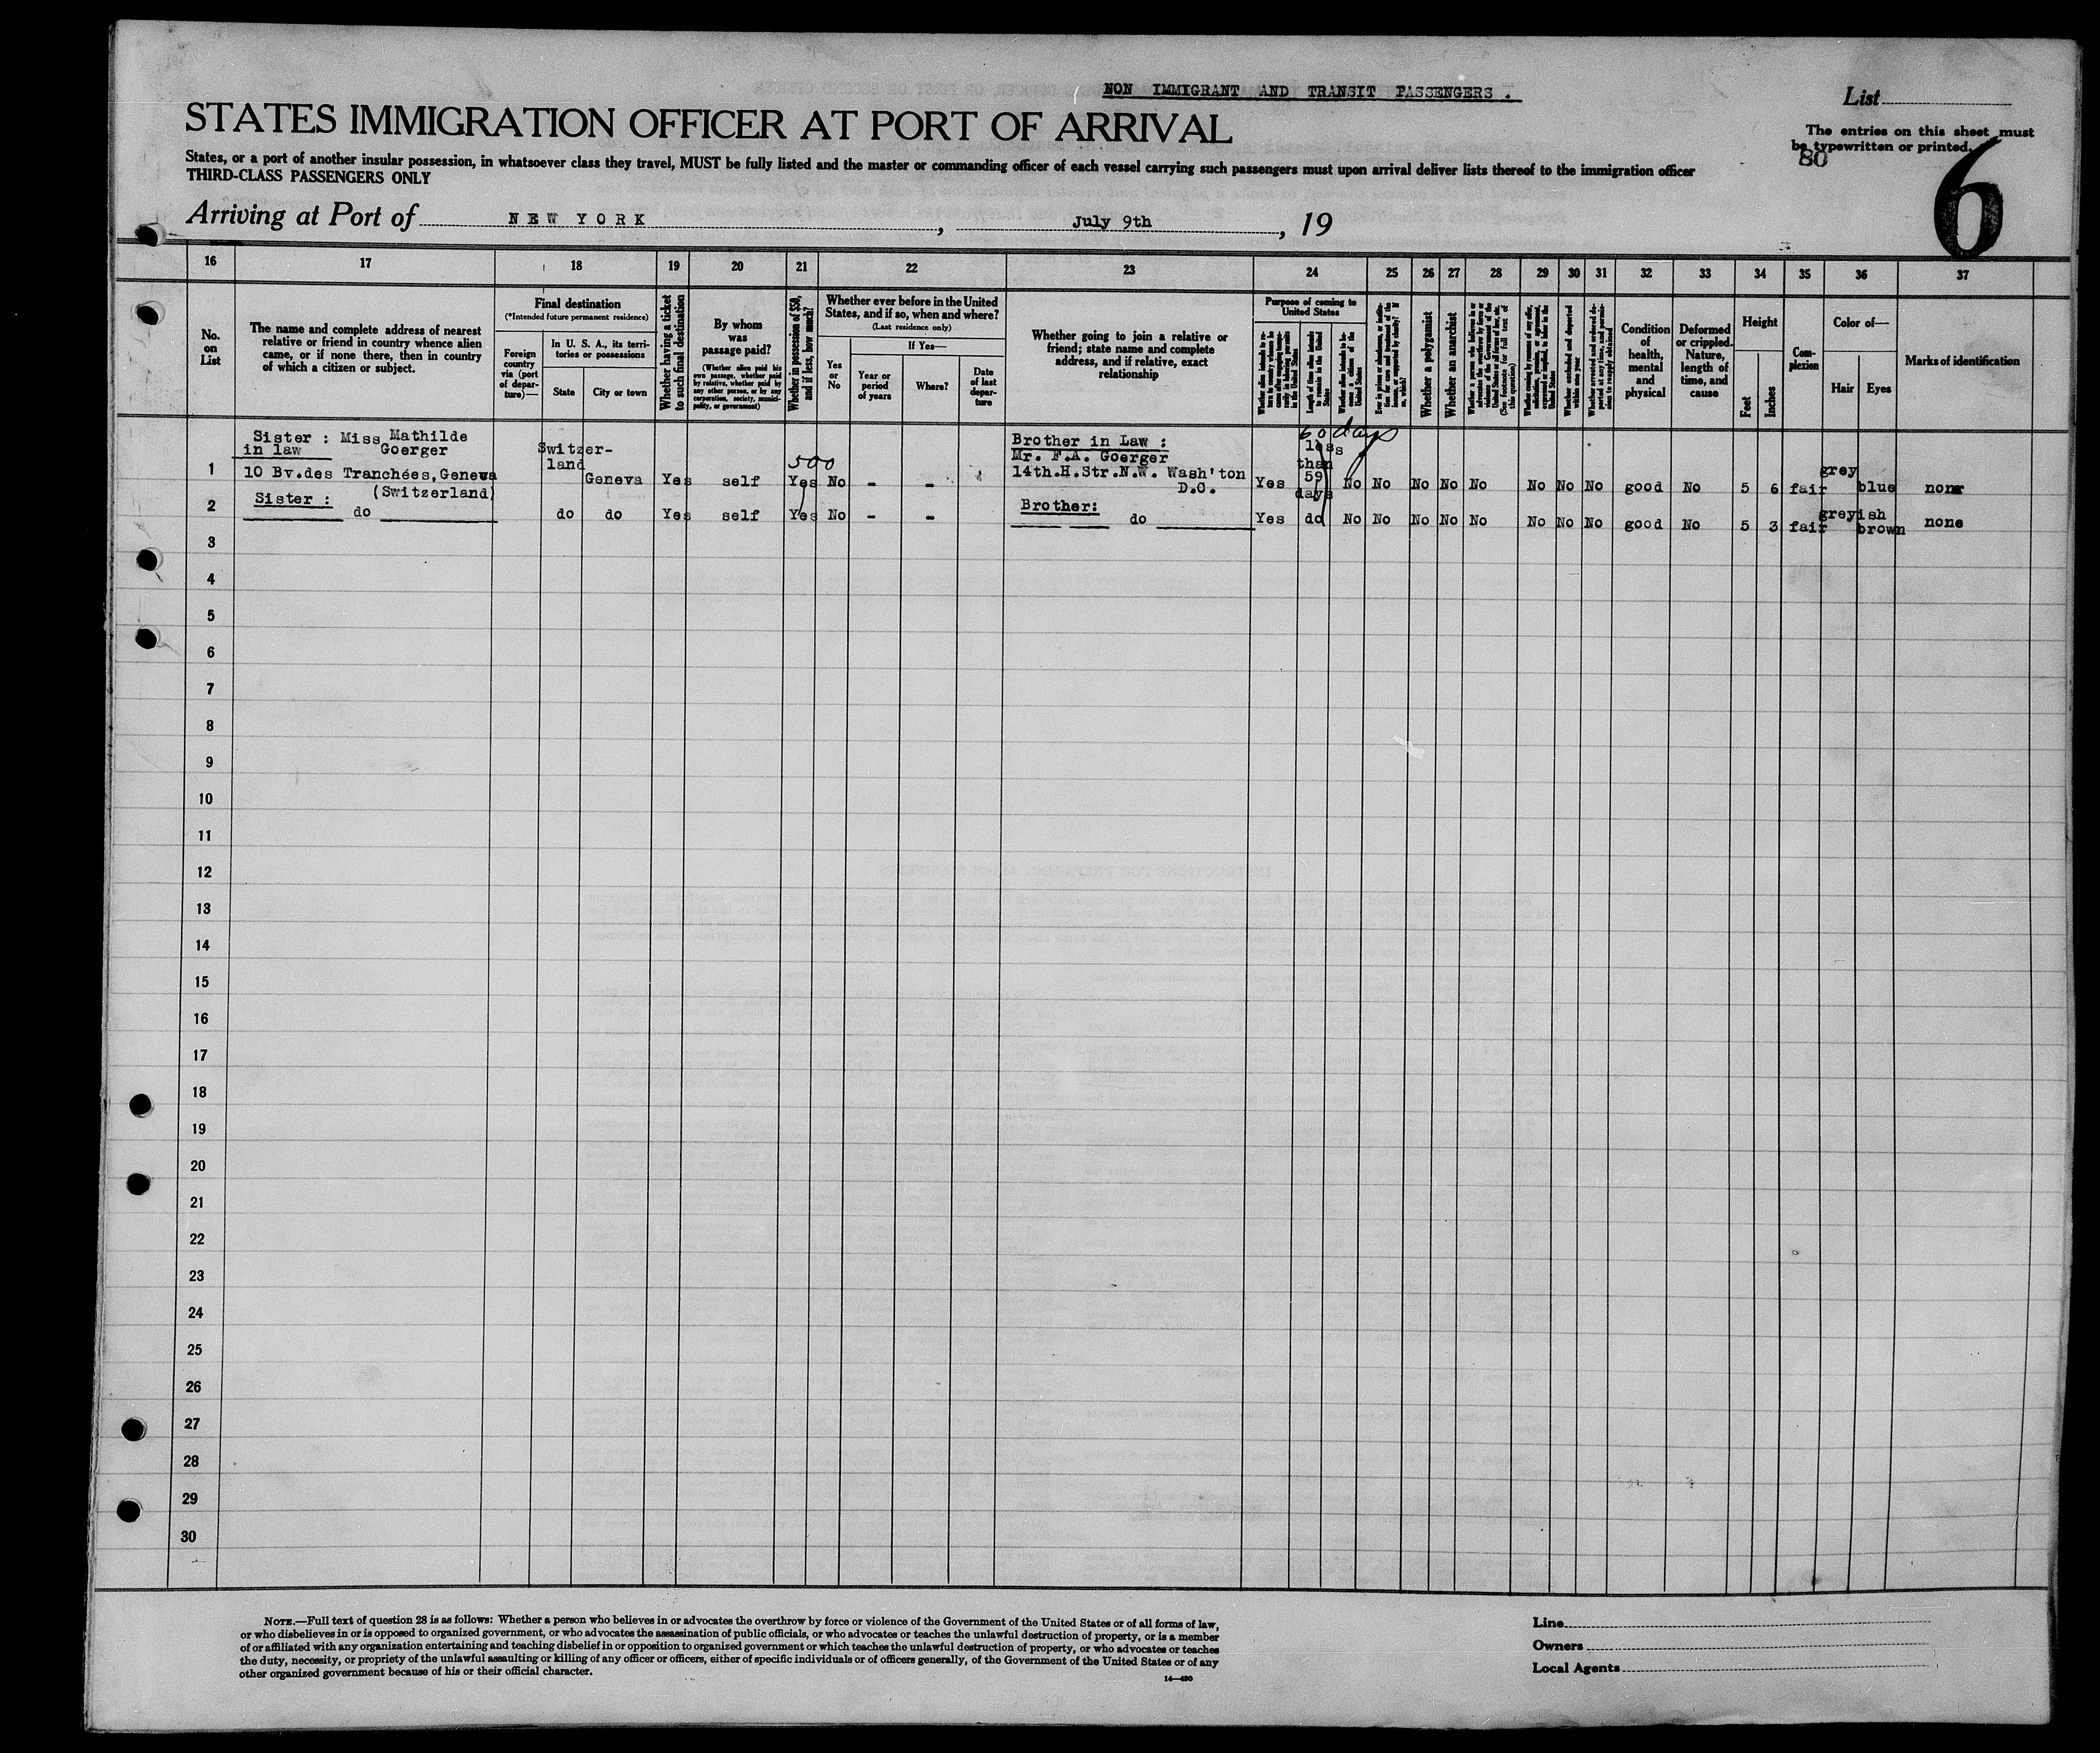 NON IMMIGRANT AND TRANSIT PASSENGERS.
STATES IMMIGRATION OFFICER AT PORT OF ARRIVAL
List
The entries on this sheet must
be typewritten or printed.
80
6
States, or a port of another insular possession, in whatsoever class they travel, MUST be fully listed and the master or commanding officer of each vessel carrying such passengers must upon arrival deliver lists thereof to the immigration officer
THIRD-CLASS PASSENGERS ONLY
Arriving at Port of NEW YORK, July 9th, 19
16 17 18 19 20 21 22 23 24 25 26 27 28 29 30 31 32 33 34 35 36 37
No. on List
The name and complete address of nearest
relative or friend in country whence alien
came, or if none there, then in country
of which a citizen or subject.
Final destination
(*Intended future permanent residence)
Foreign country via (port of departure)—
In U. S. A., its territories or possessions
State
City or town
Whether having a ticket to such final destination
By whom was passage paid?
(Whether alien paid his own passage, whether paid by relative, whether paid by any other person, or by any corporation, society, municipality, or government)
Whether in possession of $50, and if less, how much?
Whether ever before in the United
States, and if so, when and where?
(Last residence only)
Yes or No
If Yes—
Year or period of years
Where?
Date of last departure
Whether going to join a relative or
friend; state name and complete
address, and if relative, exact
relationship
Purpose of coming to United States
Length of time alien intends to remain in the United States
Whether alien intends to become a citizen of the United States
Whether a polygamist
Whether an anarchist
Condition of health, mental and physical
Deformed or crippled. Nature, length of time, and cause
Height
Feet
Inches
Complexion
Color of—
Hair
Eyes
Marks of identification
60 days
Sister : Miss Mathilde
in law Goerger
10 Bv.des Tranchées, Geneva
(Switzerland)
1 Switzer-
land
Geneva Yes self 500 Yes No - -
Brother in Law :
Mr. F.A. Goerger
14th.H.Str.N.W. Wash'ton
D.C.
Yes less
than
59
days
No No No No No No No No good No 5 6 fair grey blue none
2 Sister :
do do do Yes self Yes No - - Brother:
do Yes do No No No No No No No No good No 5 3 fair greyish brown none
3
4
5
6
7
8
9
10
11
12
13
14
15
16
17
18
19
20
21
22
23
24
25
26
27
28
29
30
NOTE.—Full text of question 28 is as follows: Whether a person who believes in or advocates the overthrow by force or violence of the Government of the United States or of all forms of law,
or who disbelieves in or is opposed to organized government, or who advocates the assassination of public officials, or who advocates or teaches the unlawful destruction of property, or is a member
of or affiliated with any organization entertaining and teaching disbelief in or opposition to organized government or which teaches the unlawful destruction of property, or who advocates or teaches
the duty, necessity, or propriety of the unlawful assaulting or killing of any officer or officers, either of specific individuals or of officers generally, of the Government of the United States or of any
other organized government because of his or their official character.
Line
Owners
Local Agents